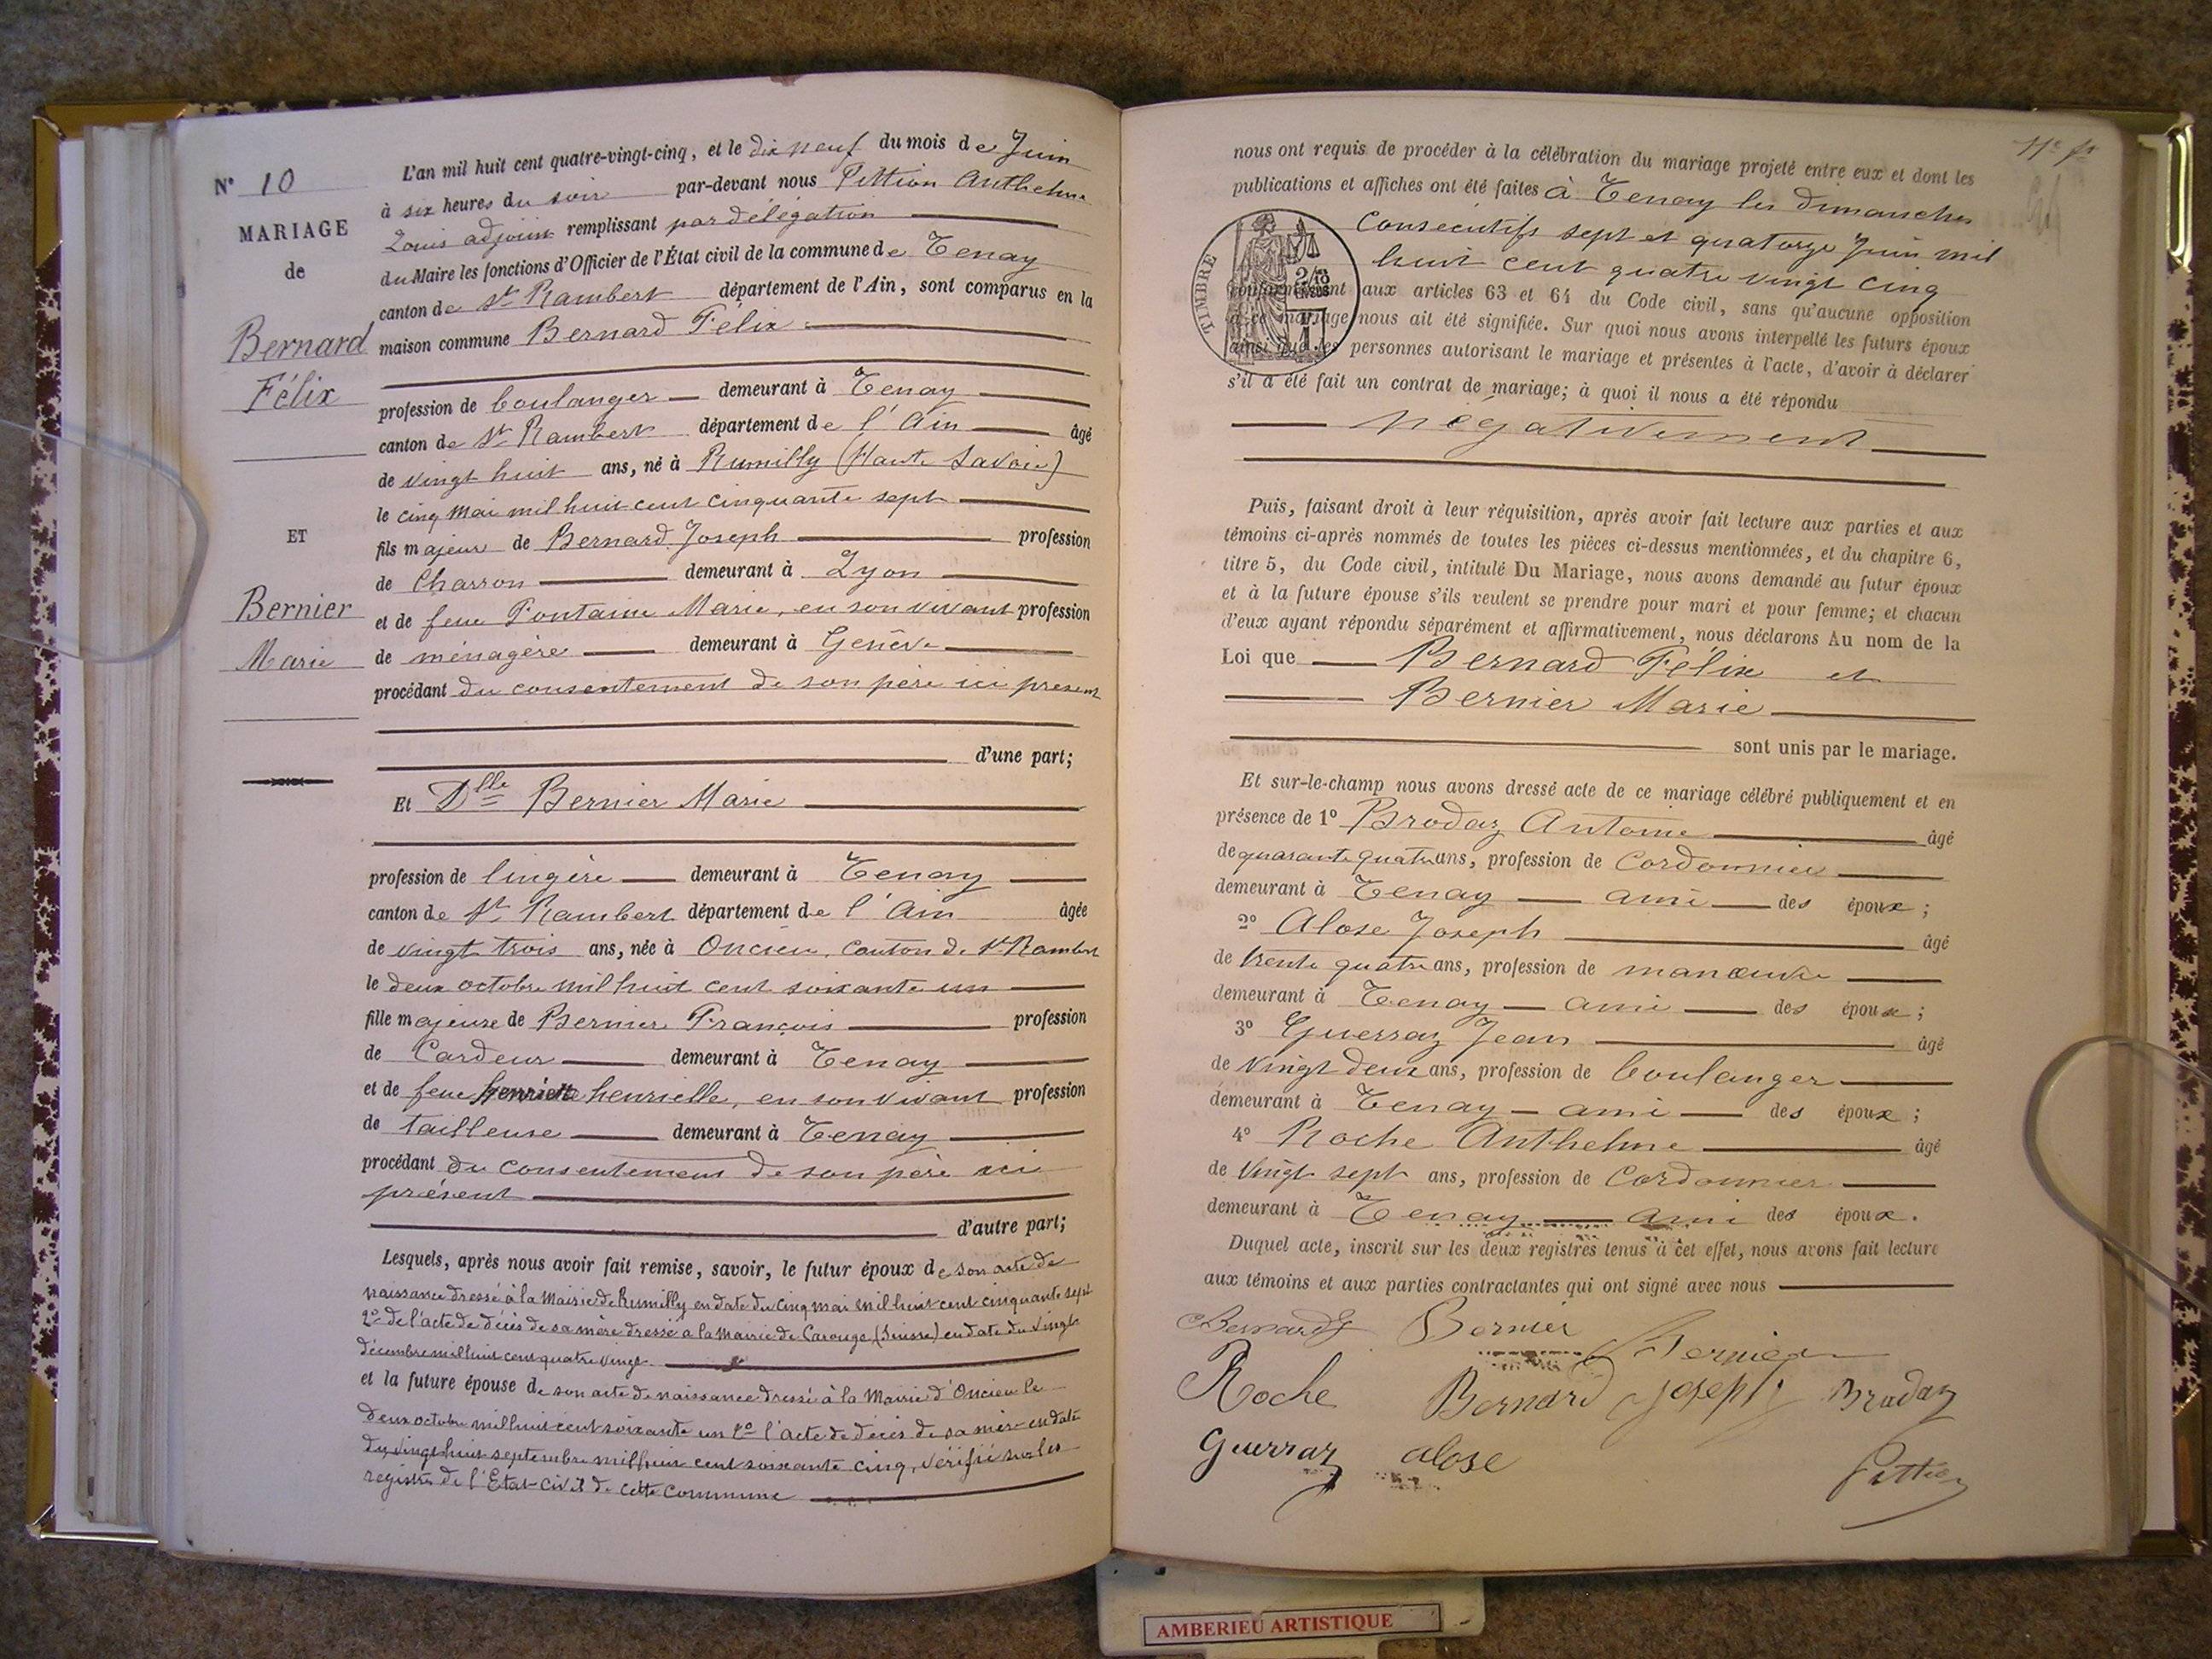 N° 10
MARIAGE
de
Bernard
Félix
ET
Bernier
Marie
L'an mil huit cent quatre-vingt-cinq, et le dix neuf du mois de Juin
à six heures du soir par-devant nous Pittion Anthelme
Louis adjoint remplissant par délégation
du Maire les fonctions d'Officier de l'État civil de la commune de Tenay
canton de St Rambert département de l'Ain, sont comparus en la
maison commune Bernard Félix
profession de boulanger demeurant à Tenay
canton de St Rambert département de l'Ain âgé
de vingt huit ans, né à Rumilly (Haute Savoie)
le cinq mai mil huit cent cinquante sept
fils majeur de Bernard Joseph profession
de Charron demeurant à Lyon
et de feue Fontaine Marie, en son vivant profession
de ménagère demeurant à Genève
procédant du consentement de son père ici présent
d'une part;
Et Dlle Bernier Marie
profession de lingère demeurant à Tenay
canton de St Rambert département de l'Ain âgée
de vingt trois ans, née à Oncieu, canton de St Rambert
le deux octobre mil huit cent soixante un
fille majeure de Bernier François profession
de Cardeur demeurant à Tenay
et de feue henrielle, en son vivant profession
de tailleuse demeurant à Tenay
procédant du consentement de son père ici
présent
d'autre part;
Lesquels, après nous avoir fait remise, savoir, le futur époux de son acte de
naissance dressé à la Mairie de Rumilly en date du cinq mai mil huit cent cinquante sept
2° de l'acte de décès de sa mère dressé à la Mairie de Carouge (Suisse) en date du vingt
décembre mil huit cent quatre vingt
et la future épouse de son acte de naissance dressé à la Mairie d'Oncieu le
deux octobre mil huit cent soixante un 2° l'acte de décès de sa mère en date
du vingt huit septembre mil huit cent soixante cinq, vérifié sur les
registres de l'Etat-Civil de cette commune
nous ont requis de procéder à la célébration du mariage projeté entre eux et dont les
publications et affiches ont été faites à Tenay les dimanches
consécutifs sept et quatorze Juin mil
huit cent quatre vingt cinq
TIMBRE
conformément aux articles 63 et 64 du Code civil, sans qu'aucune opposition
à ce mariage nous ait été signifiée. Sur quoi nous avons interpellé les futurs époux
ainsi que les personnes autorisant le mariage et présentes à l'acte, d'avoir à déclarer
s'il a été fait un contrat de mariage; à quoi il nous a été répondu
négativement
Puis, faisant droit à leur réquisition, après avoir fait lecture aux parties et aux
témoins ci-après nommés de toutes les pièces ci-dessus mentionnées, et du chapitre 6,
titre 5, du Code civil, intitulé Du Mariage, nous avons demandé au futur époux
et à la future épouse s'ils veulent se prendre pour mari et pour femme; et chacun
d'eux ayant répondu séparément et affirmativement, nous déclarons Au nom de la
Loi que Bernard Félix et
Bernier Marie
sont unis par le mariage.
Et sur-le-champ nous avons dressé acte de ce mariage célébré publiquement et en
présence de 1° Brodaz Antoine âgé
de quarante quatre ans, profession de Cordonnier
demeurant à Tenay ami des époux;
2° Alose Joseph âgé
de trente quatre ans, profession de manœuvre
demeurant à Tenay ami des époux;
3° Guerraz Jean âgé
de vingt deux ans, profession de boulanger
demeurant à Tenay ami des époux;
4° Roche Anthelme âgé
de vingt sept ans, profession de Cordonnier
demeurant à Tenay ami des époux.
Duquel acte, inscrit sur les deux registres tenus à cet effet, nous avons fait lecture
aux témoins et aux parties contractantes qui ont signé avec nous
Bernard Bernier Bernier
Roche Bernard Joseph Brodaz
Guerraz alose Pittion
AMBERIEU ARTISTIQUE